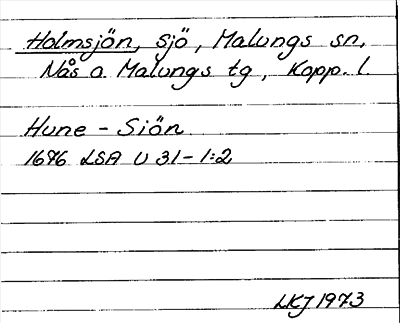 Holmsjön, sjö, Malungs sn,
Nås o. Malungs tg, Kopp. l.
Hune - Siön
1676 LSA U 31-1:2
LKJ 1973